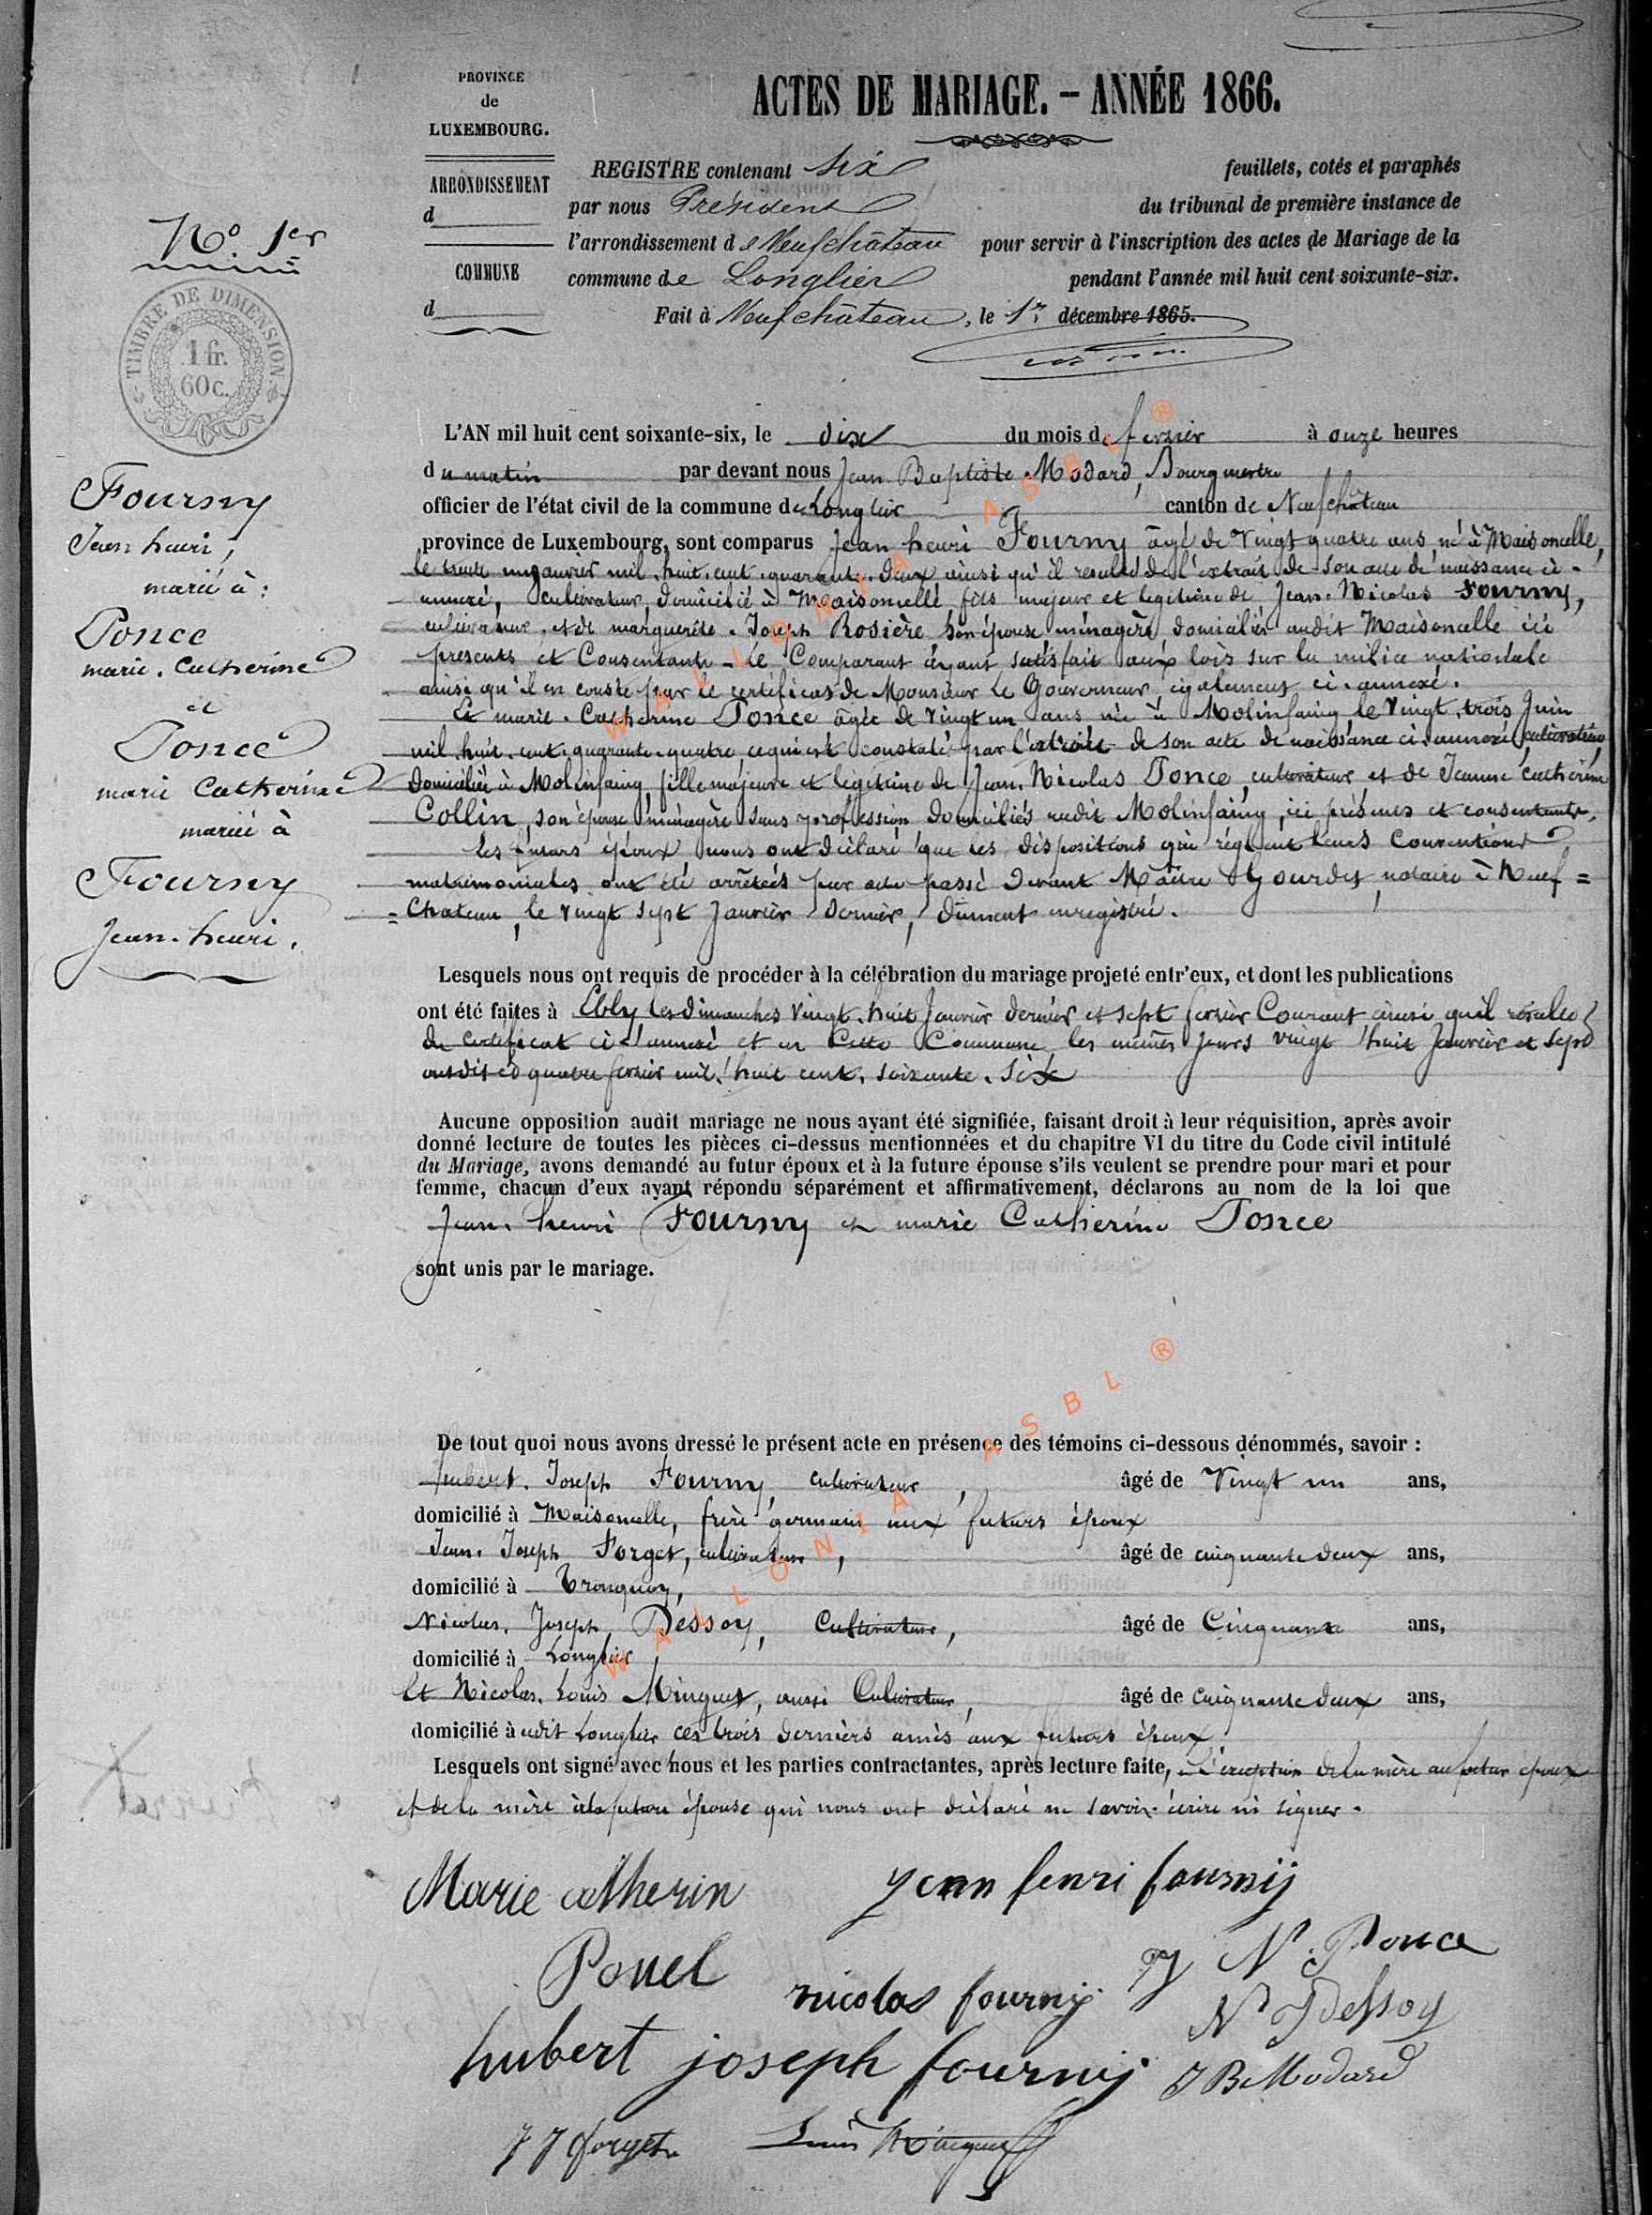 PROVINCE
de
LUXEMBOURG.
ARRONDISSEMENT
d
COMMUNE
d
ACTES DE MARIAGE. – ANNÉE 1866.
REGISTRE contenant six feuillets, cotés et paraphés
par nous Président du tribunal de première instance de
l'arrondissement de Neufchâteau pour servir à l'inscription des actes de Mariage de la
commune de Longlier pendant l'année mil huit cent soixante-six.
Fait à Neufchâteau, le 1er décembre 1865.
No. 1er
TIMBRE DE DIMENSION
1 fr.
60 c.
Fourny
Jean henri,
marié à :
Ponce
marie. Catherine
et
Ponce
marie Catherine
mariée à
Fourny
Jean. henri.
L'AN mil huit cent soixante-six, le dix du mois de fevrier à onze heures
du matin par devant nous Jean Baptiste Modard, Bourgmestre
officier de l'état civil de la commune de Longlier canton de Neufchâteau
province de Luxembourg, sont comparus Jean henri Fourny âgé de Vingt quatre ans, né à Maisoncelle,
le trente un janvier mil. huit. cent. quarante. deux ainsi qu'il resulte de l'extrait de son acte de naissance ci-
annexé, cultivateur, domicilié à Maisoncelle, fils majeur et legitime de Jean. Nicolas Fourny,
cultivateur, et de marguerite. Joseph Rosière son épouse ménagère domiciliés audit Maisoncelle ici
presents et Consentants – Le Comparant ayant satisfait aux lois sur la milice nationale
ainsi qu'il en conste par le certificat de Monsieur Le Gouverneur, également ci. annexé.
Et marie. Catherine Ponce âgée de Vingt un ans née à Molinfaing le Vingt. trois Juin
mil. huit. cent. quarante. quatre, ce qui est constaté par l'extrait de son acte de naissance ci. annexé, cultivatrice,
domiciliée à Molinfaing, fille majeure et legitime de Jean. Nicolas Ponce, cultivateur, et de Jeanne Catherine
Collin, son épouse ménagère sans profession domiciliés audit Molinfaing, ici présents et consentants.
Les futurs époux nous ont déclaré que les dispositions qui règlent leurs Conventions
matrimoniales ont été arrêtées par acte passé Devant Maître Gourdet, notaire à Neuf=
=Chateau, le Vingt sept Janvier Dernier, Dûment enregistré.
Lesquels nous ont requis de procéder à la célébration du mariage projeté entr'eux, et dont les publications
ont été faites à Ebly les dimanches Vingt. huit Janvier dernier et sept fevrier Courant ainsi qu'il résulte
du Certificat ci annexé et en Cette Commune les mêmes Jours vingt huit Janvier et sept
quatre fevrier mil. huit cent. soixante. Six
Aucune opposition audit mariage ne nous ayant été signifiée, faisant droit à leur réquisition, après avoir
donné lecture de toutes les pièces ci-dessus mentionnées et du chapitre VI du titre du Code civil intitulé
du Mariage, avons demandé au futur époux et à la future épouse s'ils veulent se prendre pour mari et pour
femme, chacun d'eux ayant répondu séparément et affirmativement, déclarons au nom de la loi que
Jean. henri Fourny et marie Catherine Ponce
sont unis par le mariage.
De tout quoi nous avons dressé le présent acte en présence des témoins ci-dessous dénommés, savoir :
hubert. Joseph Fourny, cultivateur, âgé de Vingt un ans,
domicilié à Maisoncelle, frère germain aux futurs époux
Jean. Joseph Forget, cultivateur, âgé de cinquante deux ans,
domicilié à Tronquoy,
Nicolas. Joseph Dessoy, Cultivateur, âgé de Cinquante ans,
domicilié à Longlier
Et Nicolas. Louis Minguet, aussi Cultivateur, âgé de Cinquante deux ans,
domicilié à udit Longlier ces trois derniers amis aux futurs époux
Lesquels ont signé avec nous et les parties contractantes, après lecture faite, à l'exception de la mère au futur époux
et de la mère à la future épouse qui nous ont déclaré ne savoir écrire ni signer.
Marie catherin
Jean henri fournij
Ponel
J N. Ponce
nicolas fournij
N J Dessoy
hubert joseph fournij
J B Modard
J J forget
Louis Minguet
WALLONIA ASBL ®
WALLONIA ASBL ®